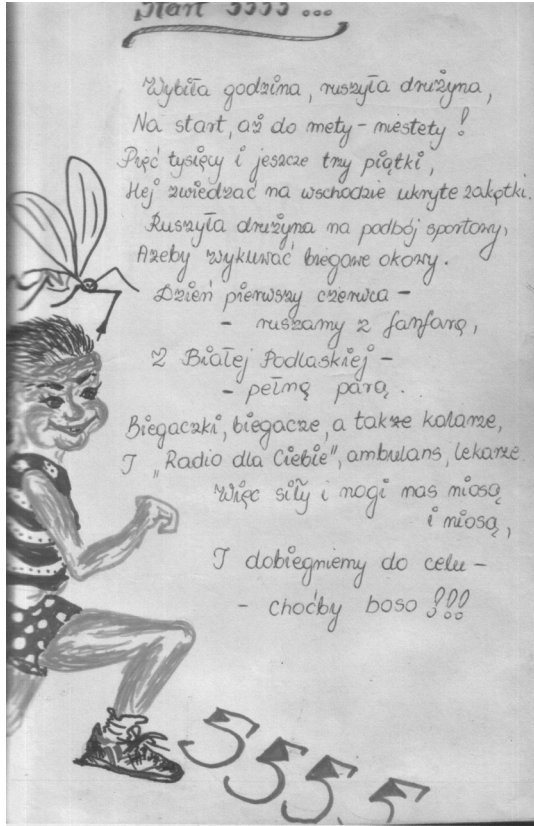 Start 5555 ...
Wybiła godzina, ruszyła drużyna,
Na start, aż do mety - niestety!
Pięć tysięcy i jeszcze trzy piątki,
Hej zwiedzać na wschodzie ukryte zakątki.
Ruszyła drużyna na podbój sportowy,
Ażeby wykuwać biegowe okowy.
Dzień pierwszy czerwca -
- ruszamy z fanfarą,
Z Białej Podlaskiej -
- pełną parą.
Biegaczki, biegacze, a także kolarze,
I „Radio dla Ciebie", ambulans, lekarze.
Więc siły i nogi nas niosą
i niosą,
I dobiegniemy do celu -
- choćby boso!!!
555.5